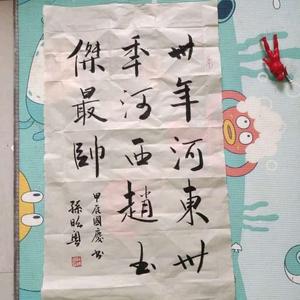 卅年河東卅
年河西趙玉
傑最帥
甲辰國慶书
孫